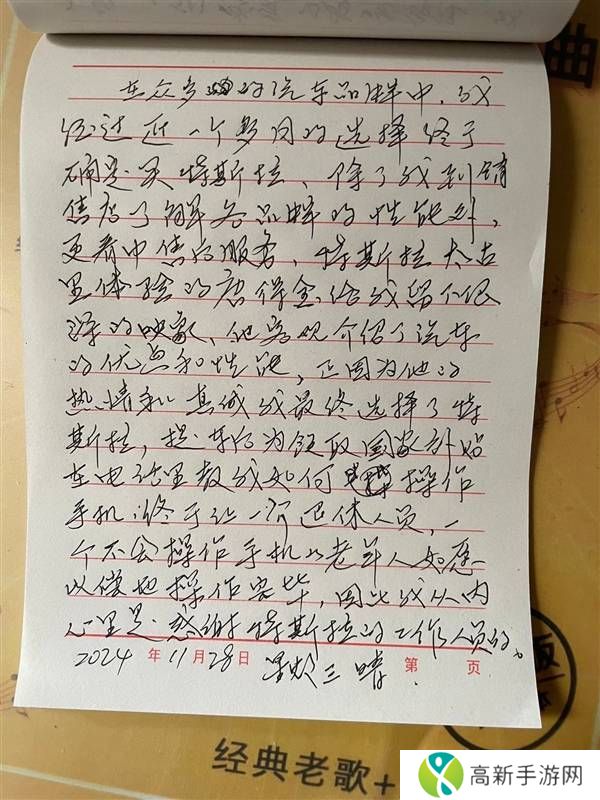 曲
在众多的汽车品牌中，我
经过近一个多月的选择终于
确定买特斯拉、除了我到销
售店了解各品牌的性能外，
更看中售后服务、特斯拉太古
里体验的唐得金给我留下很
深的映象、他客观介绍了汽车
的优点和性能，正因为他的
热情和真诚我最终选择了特
斯拉，提车后为领取国家补贴
在电话里教我如何操作
手机；终于让一个退休人员，一
个不会操作手机的老年人如愿
以偿地操作完毕，因此我从内
心里是感谢特斯拉的工作人员的。
2024 年 11 月 28 日 第 页
版
经典老歌+
高新手游网